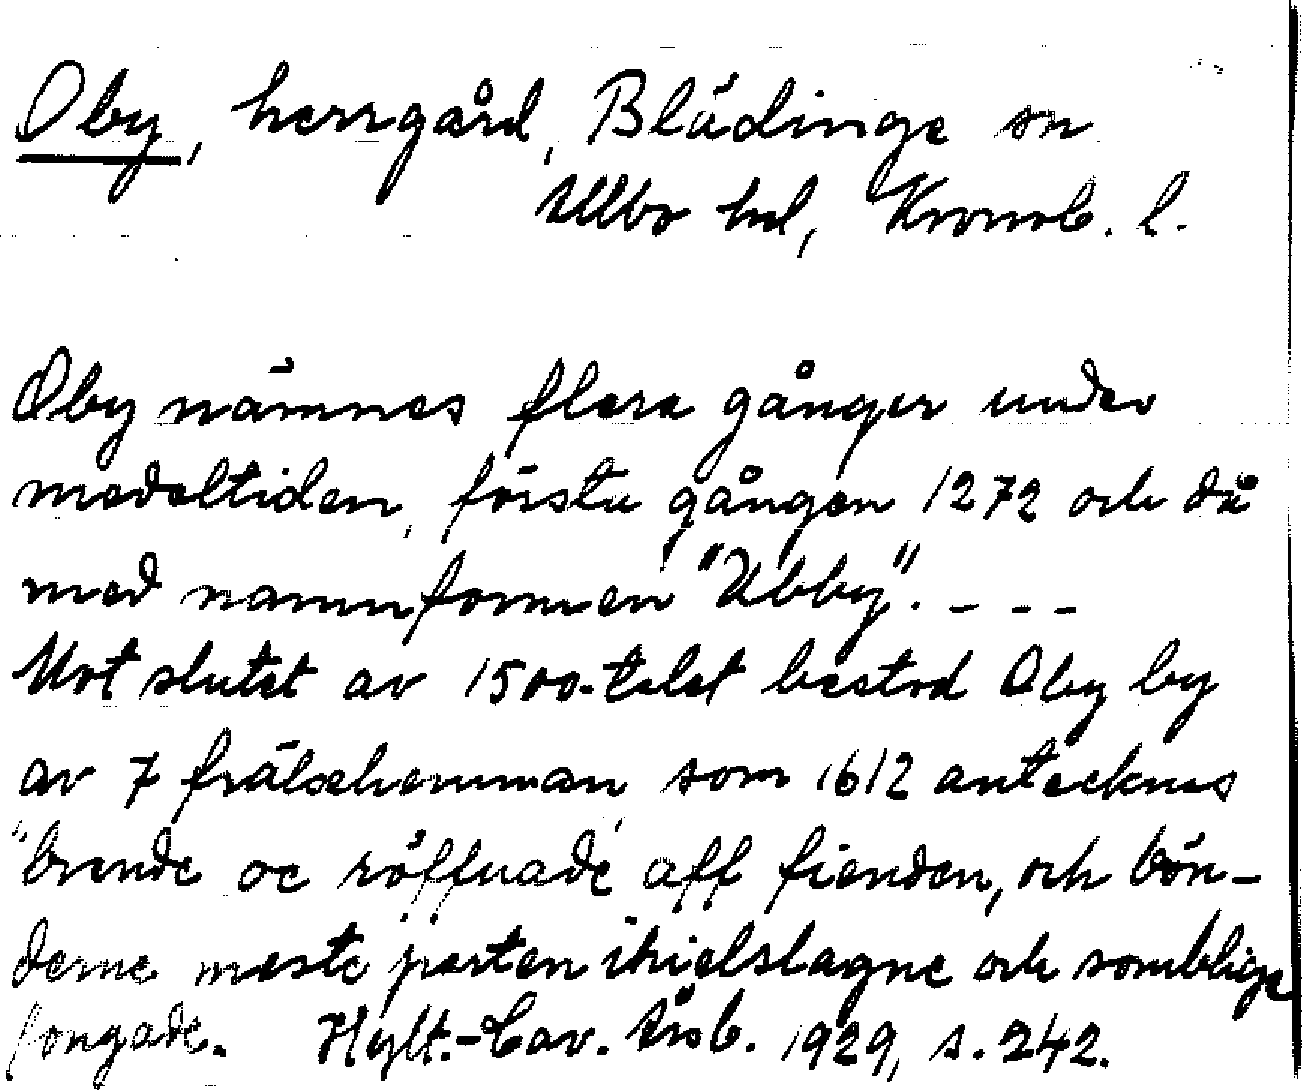 Oby, herrgård, Blädinge sn
Allbo hd, Kronob. l.
Oby nämnes flera gånger under
medeltiden, första gången 1272 och då
med namnformen "Ubby". - - -
Mot slutet av 1500-talet bestod Oby by
av 7 frälsehemman, som 1612 antecknas
"brende oc röffuade aff fienden, och bön-
derne meste parten ihielslagne och somblige
fongade. Hylt.-Cav. årsb. 1929, s. 242.